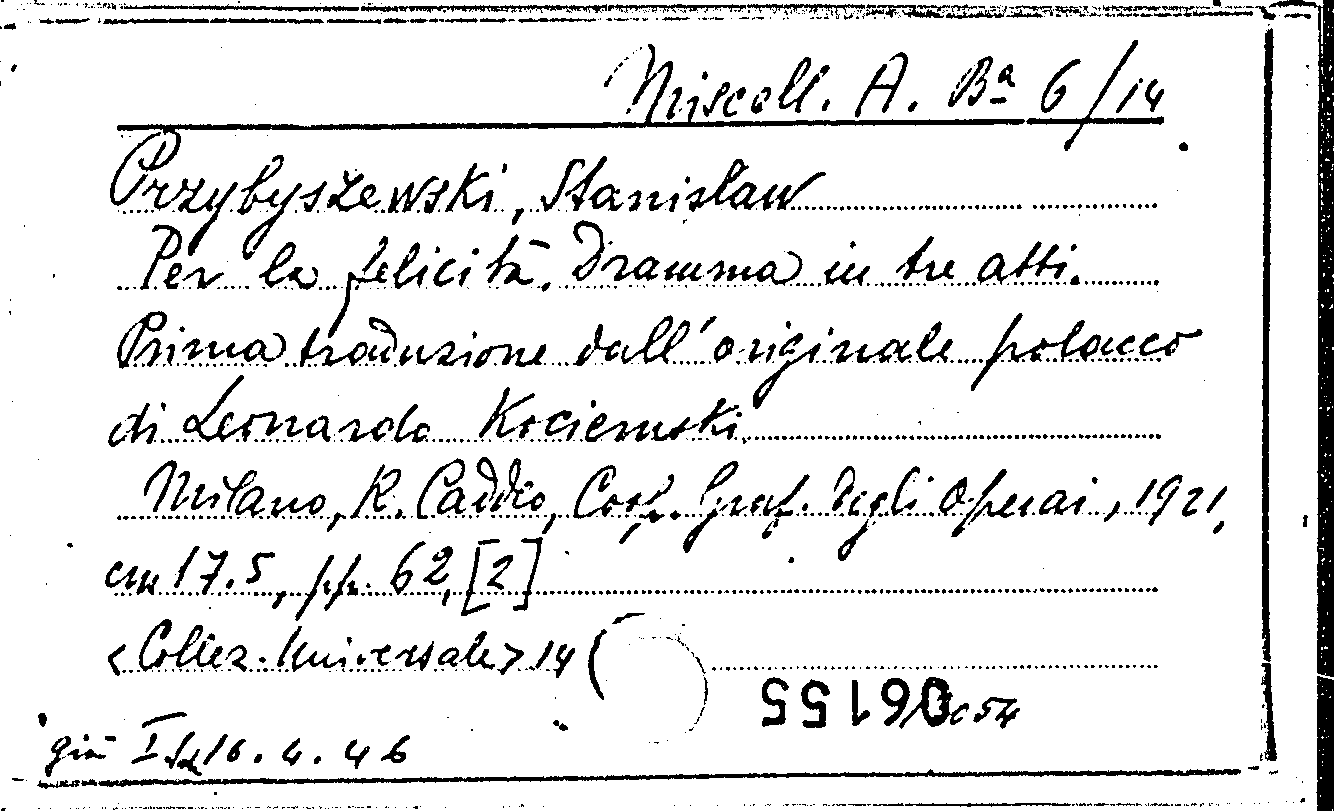 Miscell. A. Bª 6/14
Przybyszewski, Stanisław
Per la felicità. Dramma in tre atti.
Prima traduzione dall'originale polacco
di Leonardo Kociemski.
Milano, R. Caddeo, Coop. Graf. degli Operai, 1921,
cm 17.5, pp. 62, [2]
<Collez. Universale> 14 (
06155
già 16.4.46